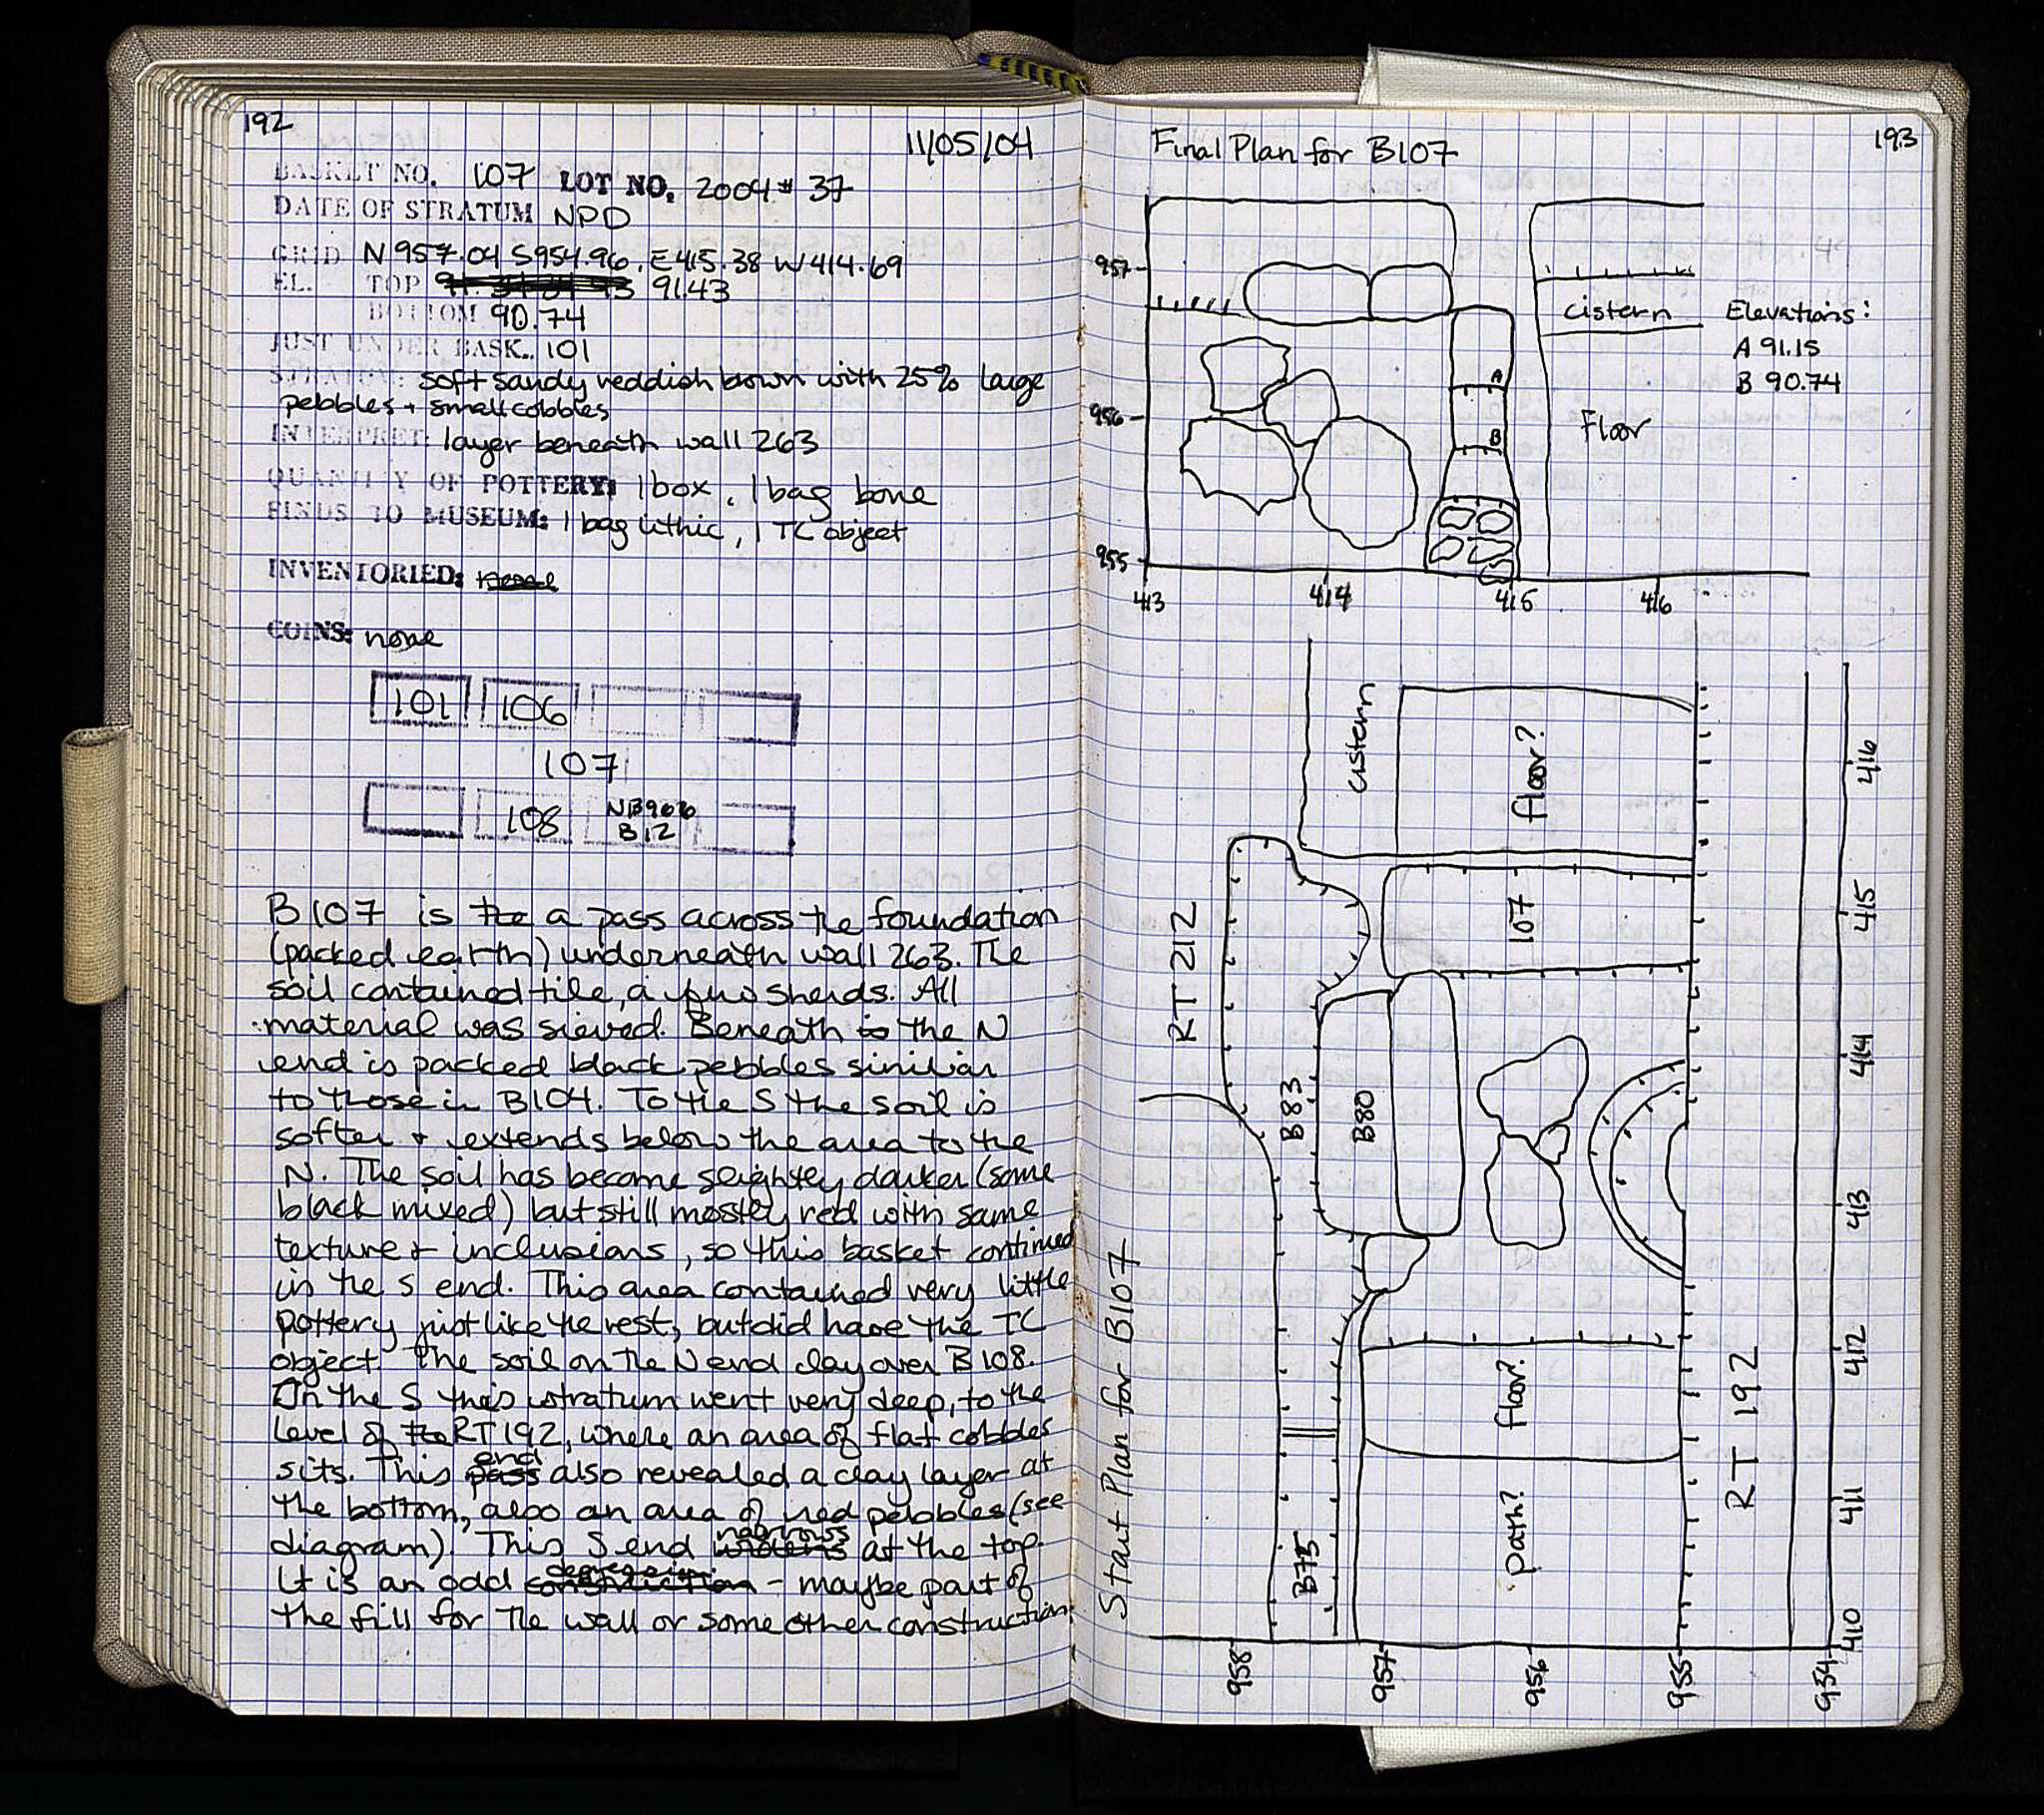 192
11/05/04
BASKET NO. 107 LOT NO. 2004 # 37
DATE OF STRATUM NPD
GRID N 957.04 S954.96, E415.38 W414.69
EL. TOP 91.43
BOTTOM 90.74
JUST UNDER BASK. 101
STRATUM: soft sandy reddish brown with 25% large
pebbles + small cobbles
INTERPRET: layer beneath wall 263
QUANTITY OF POTTERY: 1 box, 1 bag bone
FINDS TO MUSEUM: 1 bag lithic, 1 TC object
INVENTORIED:
COINS: none
101 106
107
108 NB906
B12
B107 is the a pass across the foundation
(packed earth) underneath wall 263. The
soil contained tile, a few sherds. All
material was sieved. Beneath to the N
end is packed black pebbles similiar
to those in B104. To the S the soil is
softer + extends below the area to the
N. The soil has become slightly darker (some
black mixed) but still mostly red with same
texture + inclusions, so this basket continued
in the S end. This area contained very little
pottery just like the rest, but did have the TC
object. The soil on the N end lay over B108.
On the S this stratum went very deep, to the
level of the RT 192, where an area of flat cobbles
sits. This pass end also revealed a clay layer at
the bottom, also an area of red pebbles (see
diagram). This S end widens narrows at the top.
It is an odd construction - maybe part of
the fill for the wall or some other construction.
193
Final Plan for B107
957
956
955
413
414
415
416
A
B
cistern
Floor
Elevations:
A 91.15
B 90.74
Start Plan for B107
cistern
floor?
107
RT 212
B83
B80
B75
floor?
path?
RT 192
416
415
414
413
412
411
410
958
957
956
955
954